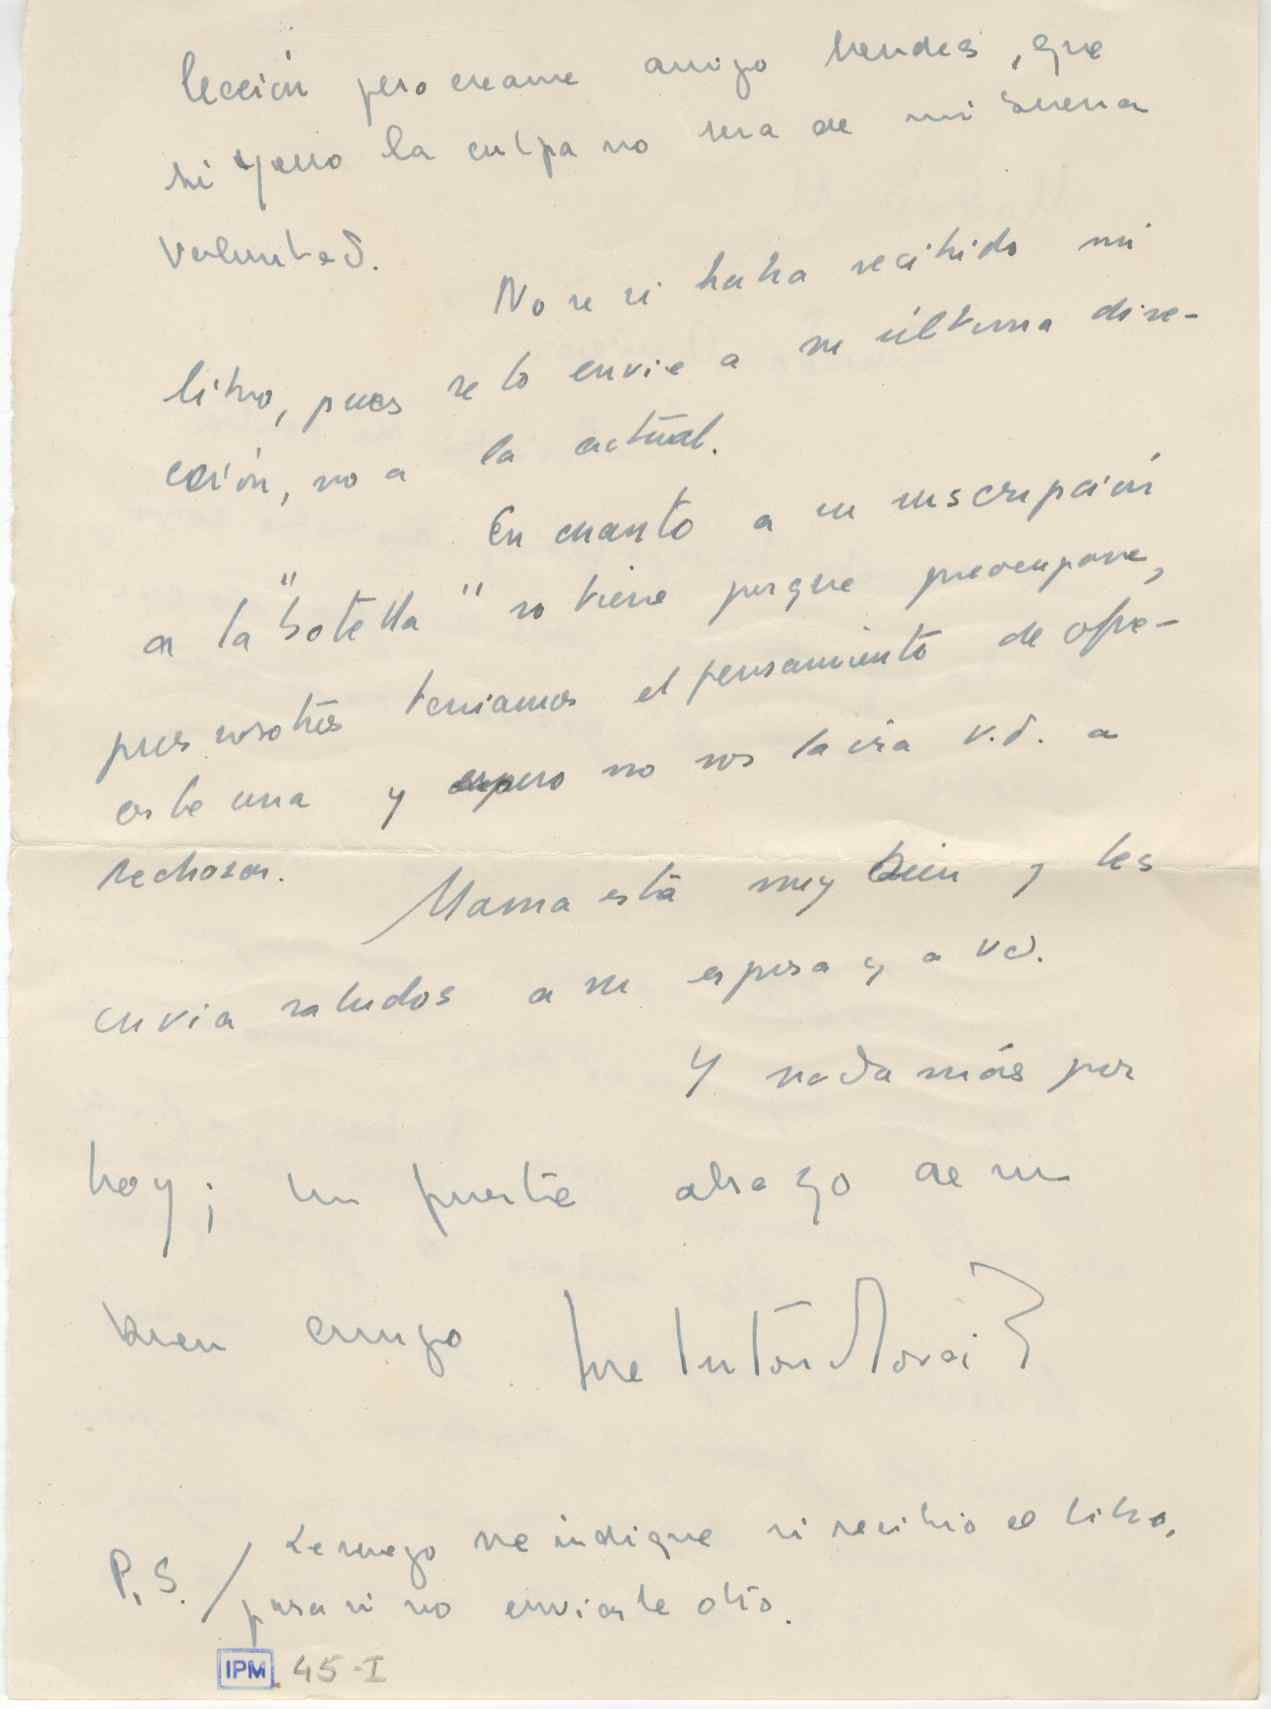 lección pero creame amigo Mendes, que
si yerro la culpa no sera de mi buena
voluntad.
No se si habra recibido mi
libro, pues se lo envie a su última dire-
cción, no a la actual.
En cuanto a su suscripción
a la "botella" no tiene porque preocuparse,
pues nosotros teniamos el pensamiento de ofre-
cerle una y espero no nos la ira v.d. a
rechazar.
Mama está muy bien y les
envia saludos a su esposa y a vd.
Y nada más por
hoy; un fuerte abrazo de su
buen amigo Jose Anton Novais
P.S./ Le ruego me indique si recibio el libro,
para si no enviarle otro.
IPM 45-I